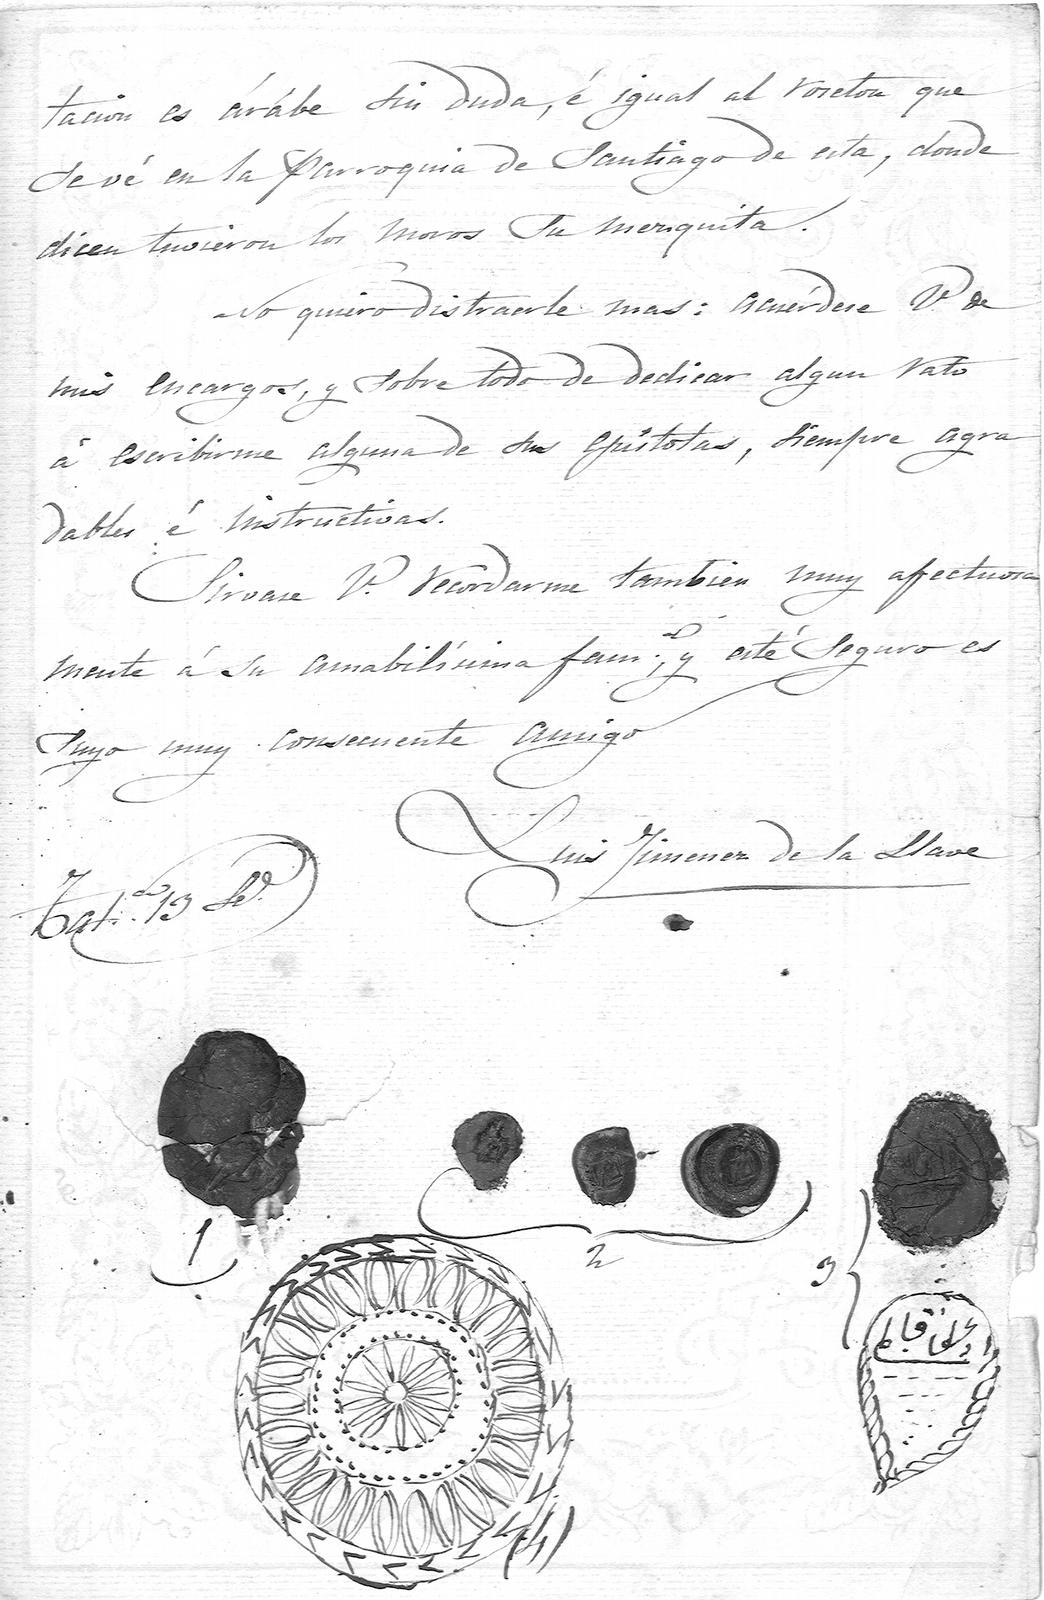 tacion es árábe sin duda, é igual al roseton que
se vé en la Parroquia de Santiago de esta, donde
dicen tuvieron los moros su mezquita.
No quiero distraerle mas: acuérdese V. de
mis encargos, y sobre todo de dedicar algun rato
á escribirme alguna de sus epístolas, siempre agra
dables é instructivas.
Sirvase V. recordarme tambien muy afectuosa
mente á su amabilísima fam.ª, y esté seguro es
suyo muy consecuente amigo
Luis Jimenez de la Llave
Tal.ª 19
1
2
3
(4)